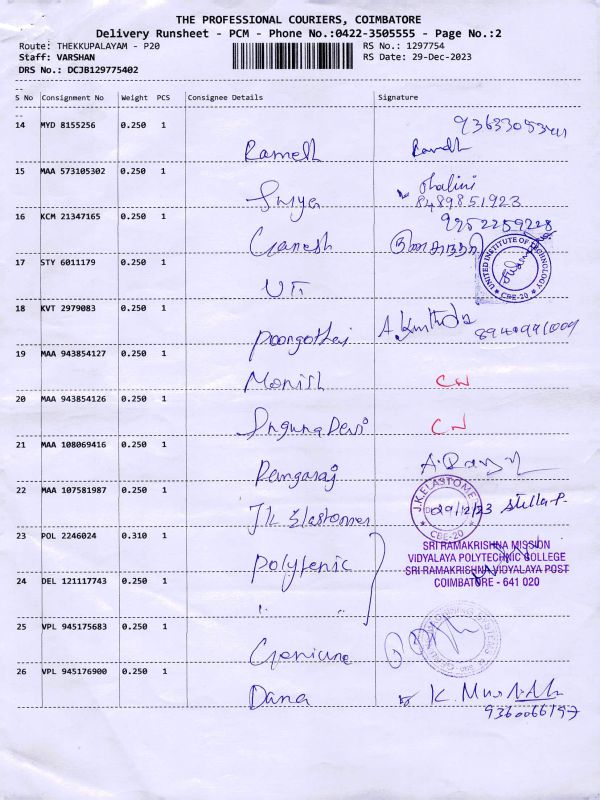 THE PROFESSIONAL COURIERS, COIMBATORE
Delivery Runsheet - PCM - Phone No.:0422-3505555 - Page No.:2
Route: THEKKUPALAYAM - P20 RS No.: 1297754
Staff: VARSHAN RS Date: 29-Dec-2023
DRS No.: DCJB129775402
S No Consignment No Weight PCS Consignee Details Signature
14 MYD 8155256 0.250 1
Ramesh
15 MAA 573105302 0.250 1
Shalini
8489851923
16 KCM 21347165 0.250 1
Ganesh
9952259228
17 STY 6011179 0.250 1
UNITED INSTITUTE OF TECHNOLOGY
CBE-20
18 KVT 2979083 0.250 1
Poongothai
19 MAA 943854127 0.250 1
Monish CN
20 MAA 943854126 0.250 1
Suguna Devi CN
21 MAA 108069416 0.250 1
Rangaraj
22 MAA 107581987 0.250 1
J.K Elastomer
J.K.ELASTOMER
29/12/23 Stella.P.
CBE-20
23 POL 2246024 0.310 1
Polytenic
SRI RAMAKRISHNA MISSION
VIDYALAYA POLYTECHNIC COLLEGE
SRI RAMAKRISHNA VIDYALAYA POST
COIMBATORE - 641 020
24 DEL 121117743 0.250 1
25 VPL 945175683 0.250 1
26 VPL 945176900 0.250 1
Dana
9360066197